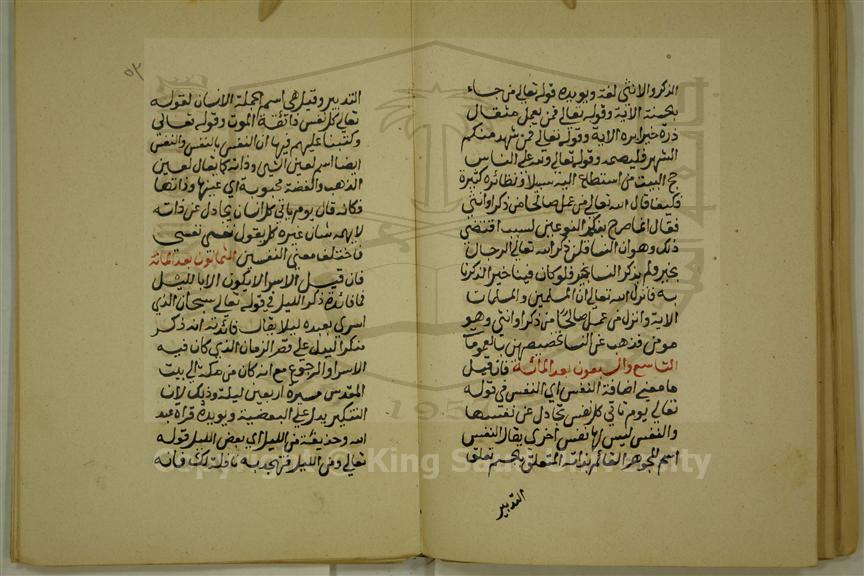 الذكر والانثى لغة ويويده قوله تعالى من جاء
بالحسنة الاية وقوله تعالى فمن يعمل مثقال
ذرة خيرا يره الاية وقوله تعالى فمن شهد منكم
الشهر فليصمه وقوله تعالى ولله على الناس
حج البيت من استطاع اليه سبيلا ونظائره كثيرة
فكيف قال الله تعالى من عمل صالحا من ذكر او انثى
فقال انما صرح بذكر النوعين لسبب اقتضى
ذلك وهو ان النسا قلن ذكر الله تعالى الرجال
بخير ولم يذكر النسا بخير فلو كان فينا خير لذكرنا
به فانزل الله تعالى ان المسلمين والمسلمات
الاية وانزل من عمل صالحا من ذكر او انثى وهو
مومن فذهب عن النسا تخصيصهن بالعموم
التاسع والسبعون بعد المائة فان قيل
ما معنى اضافة النفس الى النفس في قوله
تعالى يوم تاتي كل نفس تجادل عن نفسها
والنفس ليس لها نفس اخرى يقال النفس
اسم للجوهر القائم بذاته المتعلق بالجسم تعلق
التدبير
٥٢
التدبير وقيل هي اسم لجملة الانسان لقوله
تعالى كل نفس ذائقة الموت وقوله تعالى
وكتبنا عليهم فيها ان النفس بالنفس والنفس
ايضا اسم لعين الشي وذاته كما يقال لعين
الذهب والفضة محبوبة اي عينها وذاتها
فكانه قال يوم ياتي كل انسان يجادل عن ذاته
لا يهمه شان غيره كل يقول نفسي نفسي
فاختلف معنى النفسين الثمانون بعد المائة
فان قيل الاسرا لا يكون الا بالليل
فما فائدة ذكر الليل في قوله تعالى سبحان الذي
اسرى بعبده ليلا يقال فائدته انه ذكر
منكرا ليدل على قصر الزمان الذي كان فيه
الاسرا والرجوع مع انه كان من مكة الى بيت
المقدس مسيرة اربعين ليلة وذلك لان
التنكير يدل على البعضية ويويده قراة عبد
الله وحذيفة من الليل اي بعض الليل قوله
تعالى ومن الليل فتهجد به نافلة لك فانه
1957
Copyright © King Saud University